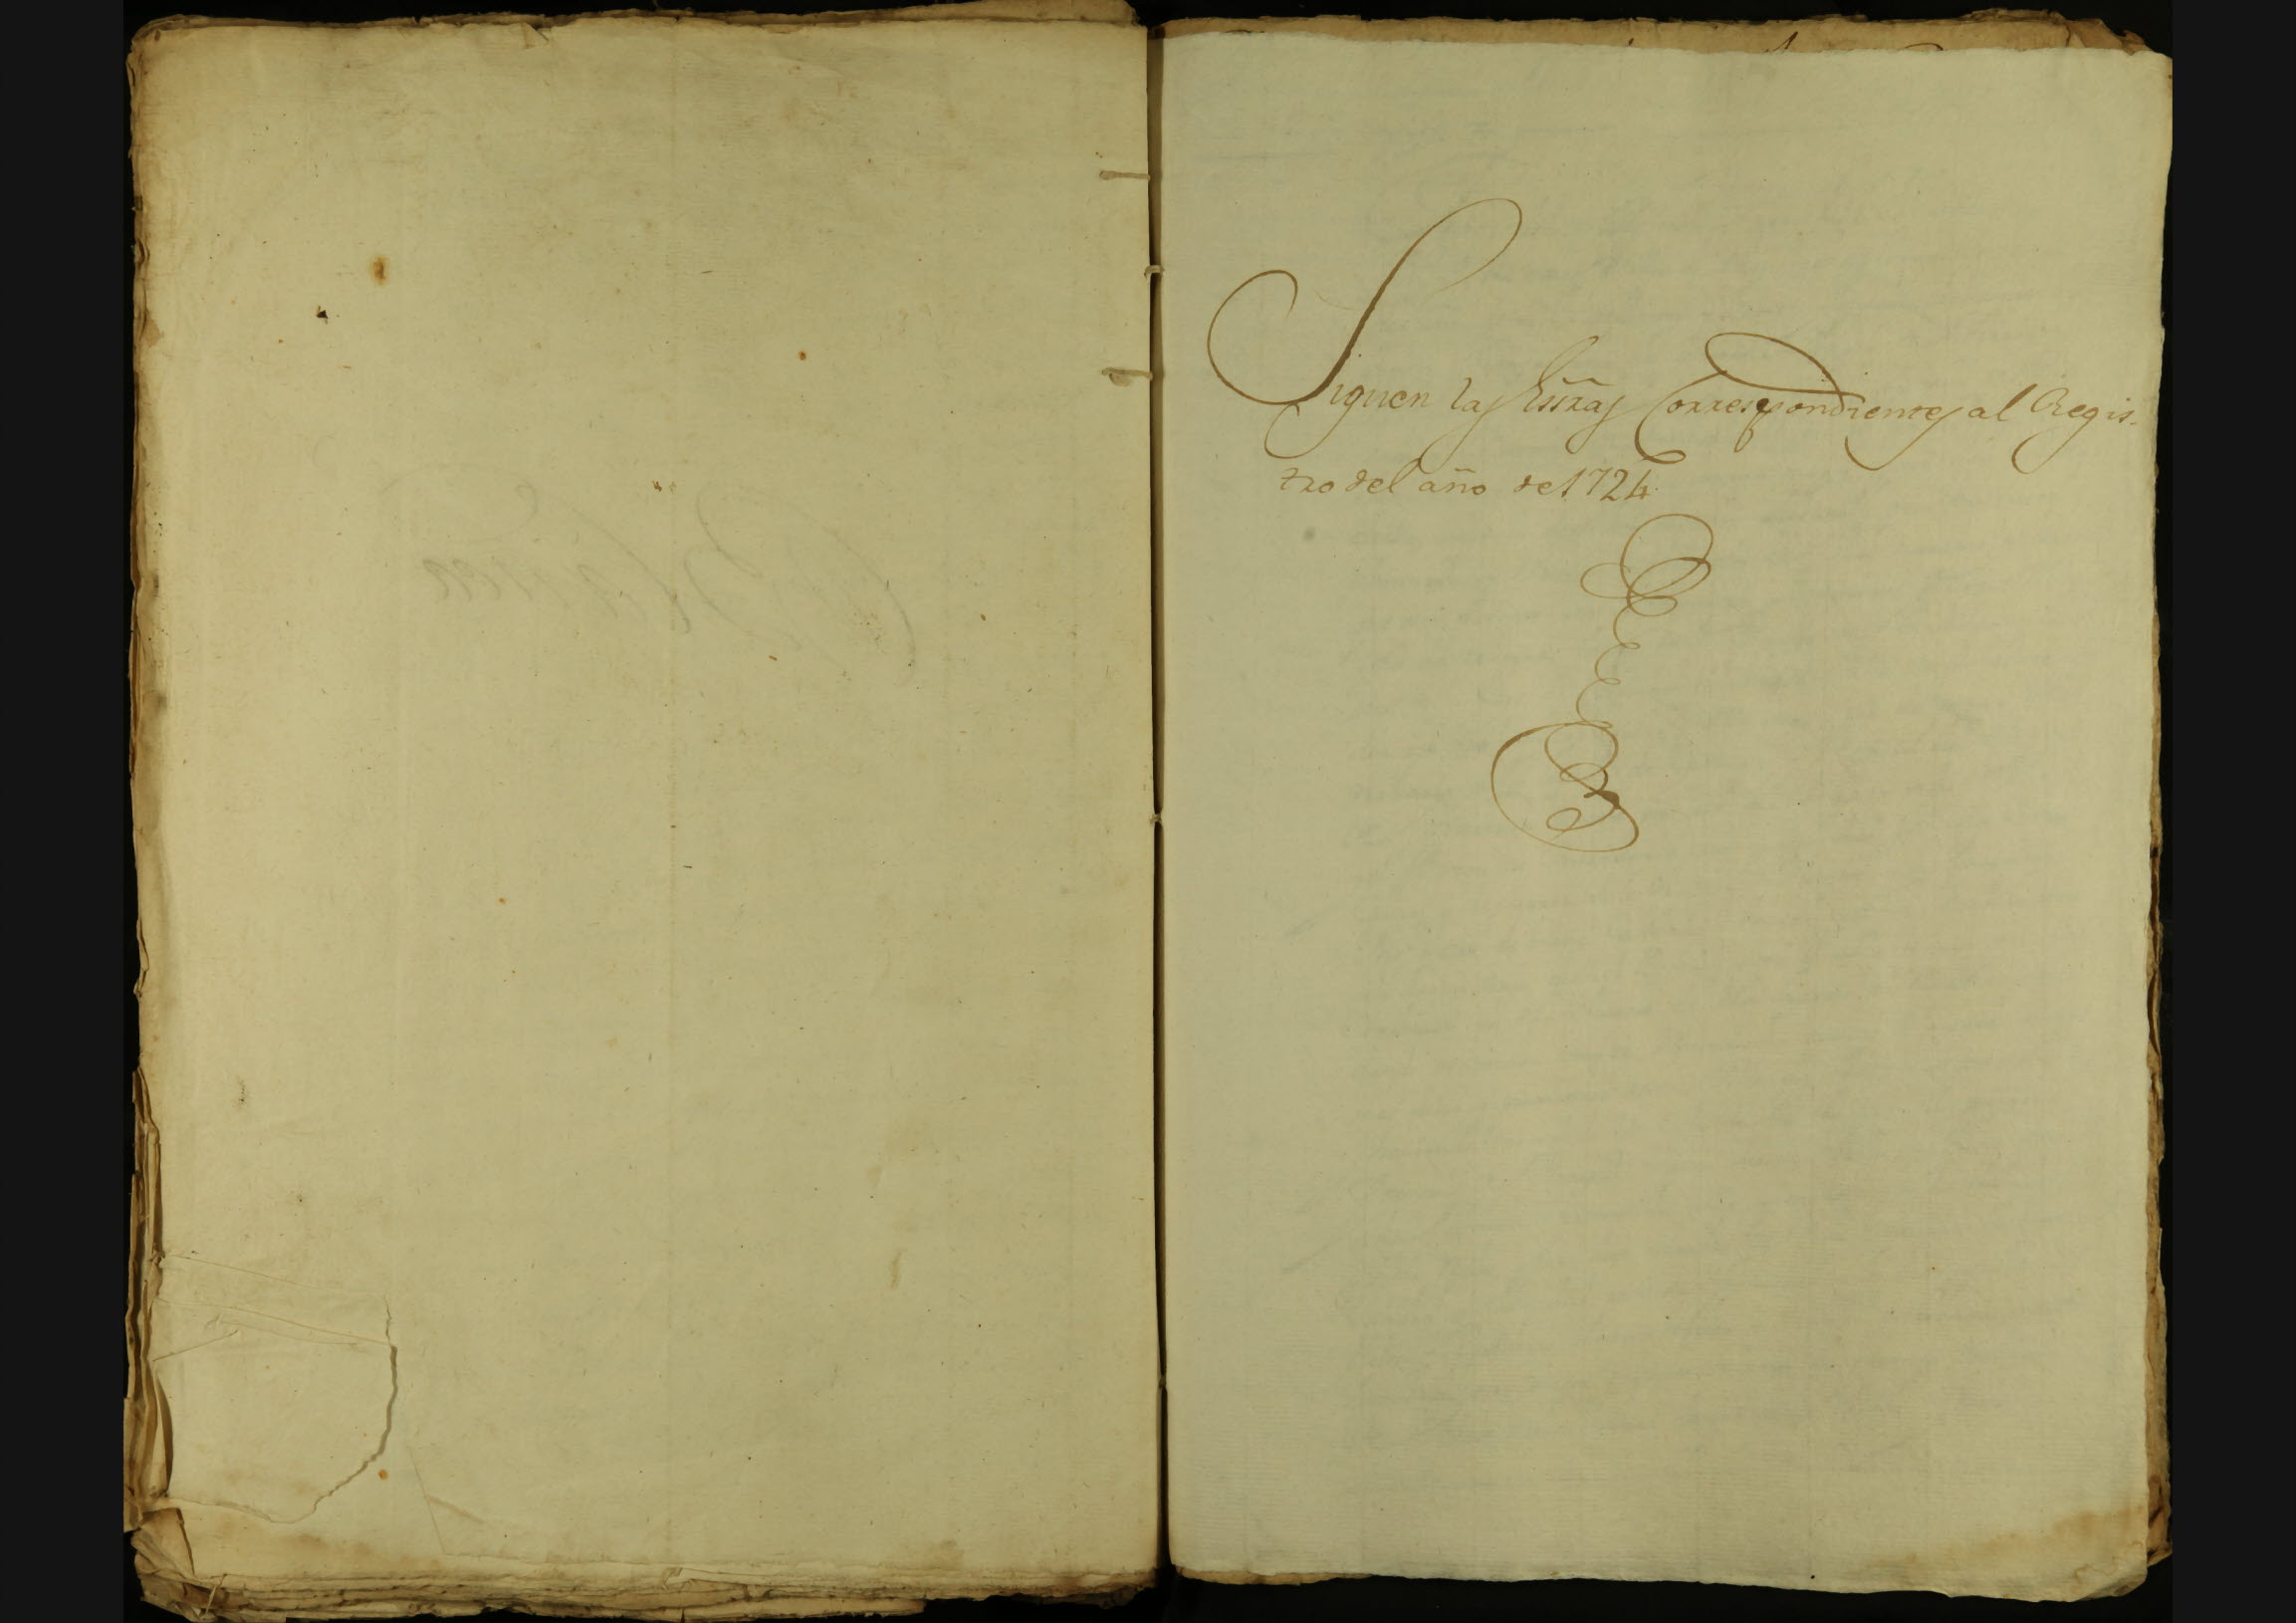 Siguen las Essras Correspondientes al Regis-
tro del año de 1724